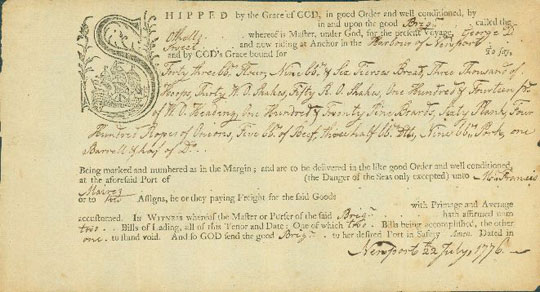 SHIPPED by the Grace of GOD, in good Order and well conditioned, by
in and upon the good Brig called the
Othello, whereof is Master, under God, for the present Voyage, George D.
and now riding at Anchor in the Harbour of Newport
and by GOD's Grace bound for to say,
Forty three bb. Flour, Nine bb. & Six Tierces Bread, Three Thousand of
Hoops, Thirty W.O. Shakes, Fifty R.O. Shakes, One Hundred & Fourteen
of W.O. Heading, One Hundred & Twenty Pine Boards, Sixty Plank, Four
Hundred Ropes of Onions, Five bb. of Beef, three half bb. Nine bb. Pork, one
Barrell & half of Do.
Being marked and numbered as in the Margin; and are to be delivered in the like good Order and well conditioned,
at the aforesaid Port of (the Danger of the Seas only excepted) unto Mr. Francis
or to Assigns, he or they paying Freight for the said Goods
with Primage and Average
accustomed. In WITNESS whereof the Master or Purser of the said Brig hath affirmed unto
two Bills of Lading, all of this Tenor and Date; One of which two Bills being accomplished, the other
one to stand void. And so GOD send the good Brig to her desired Port in Safety Amen. Dated in
Newport 22 July, 1776.